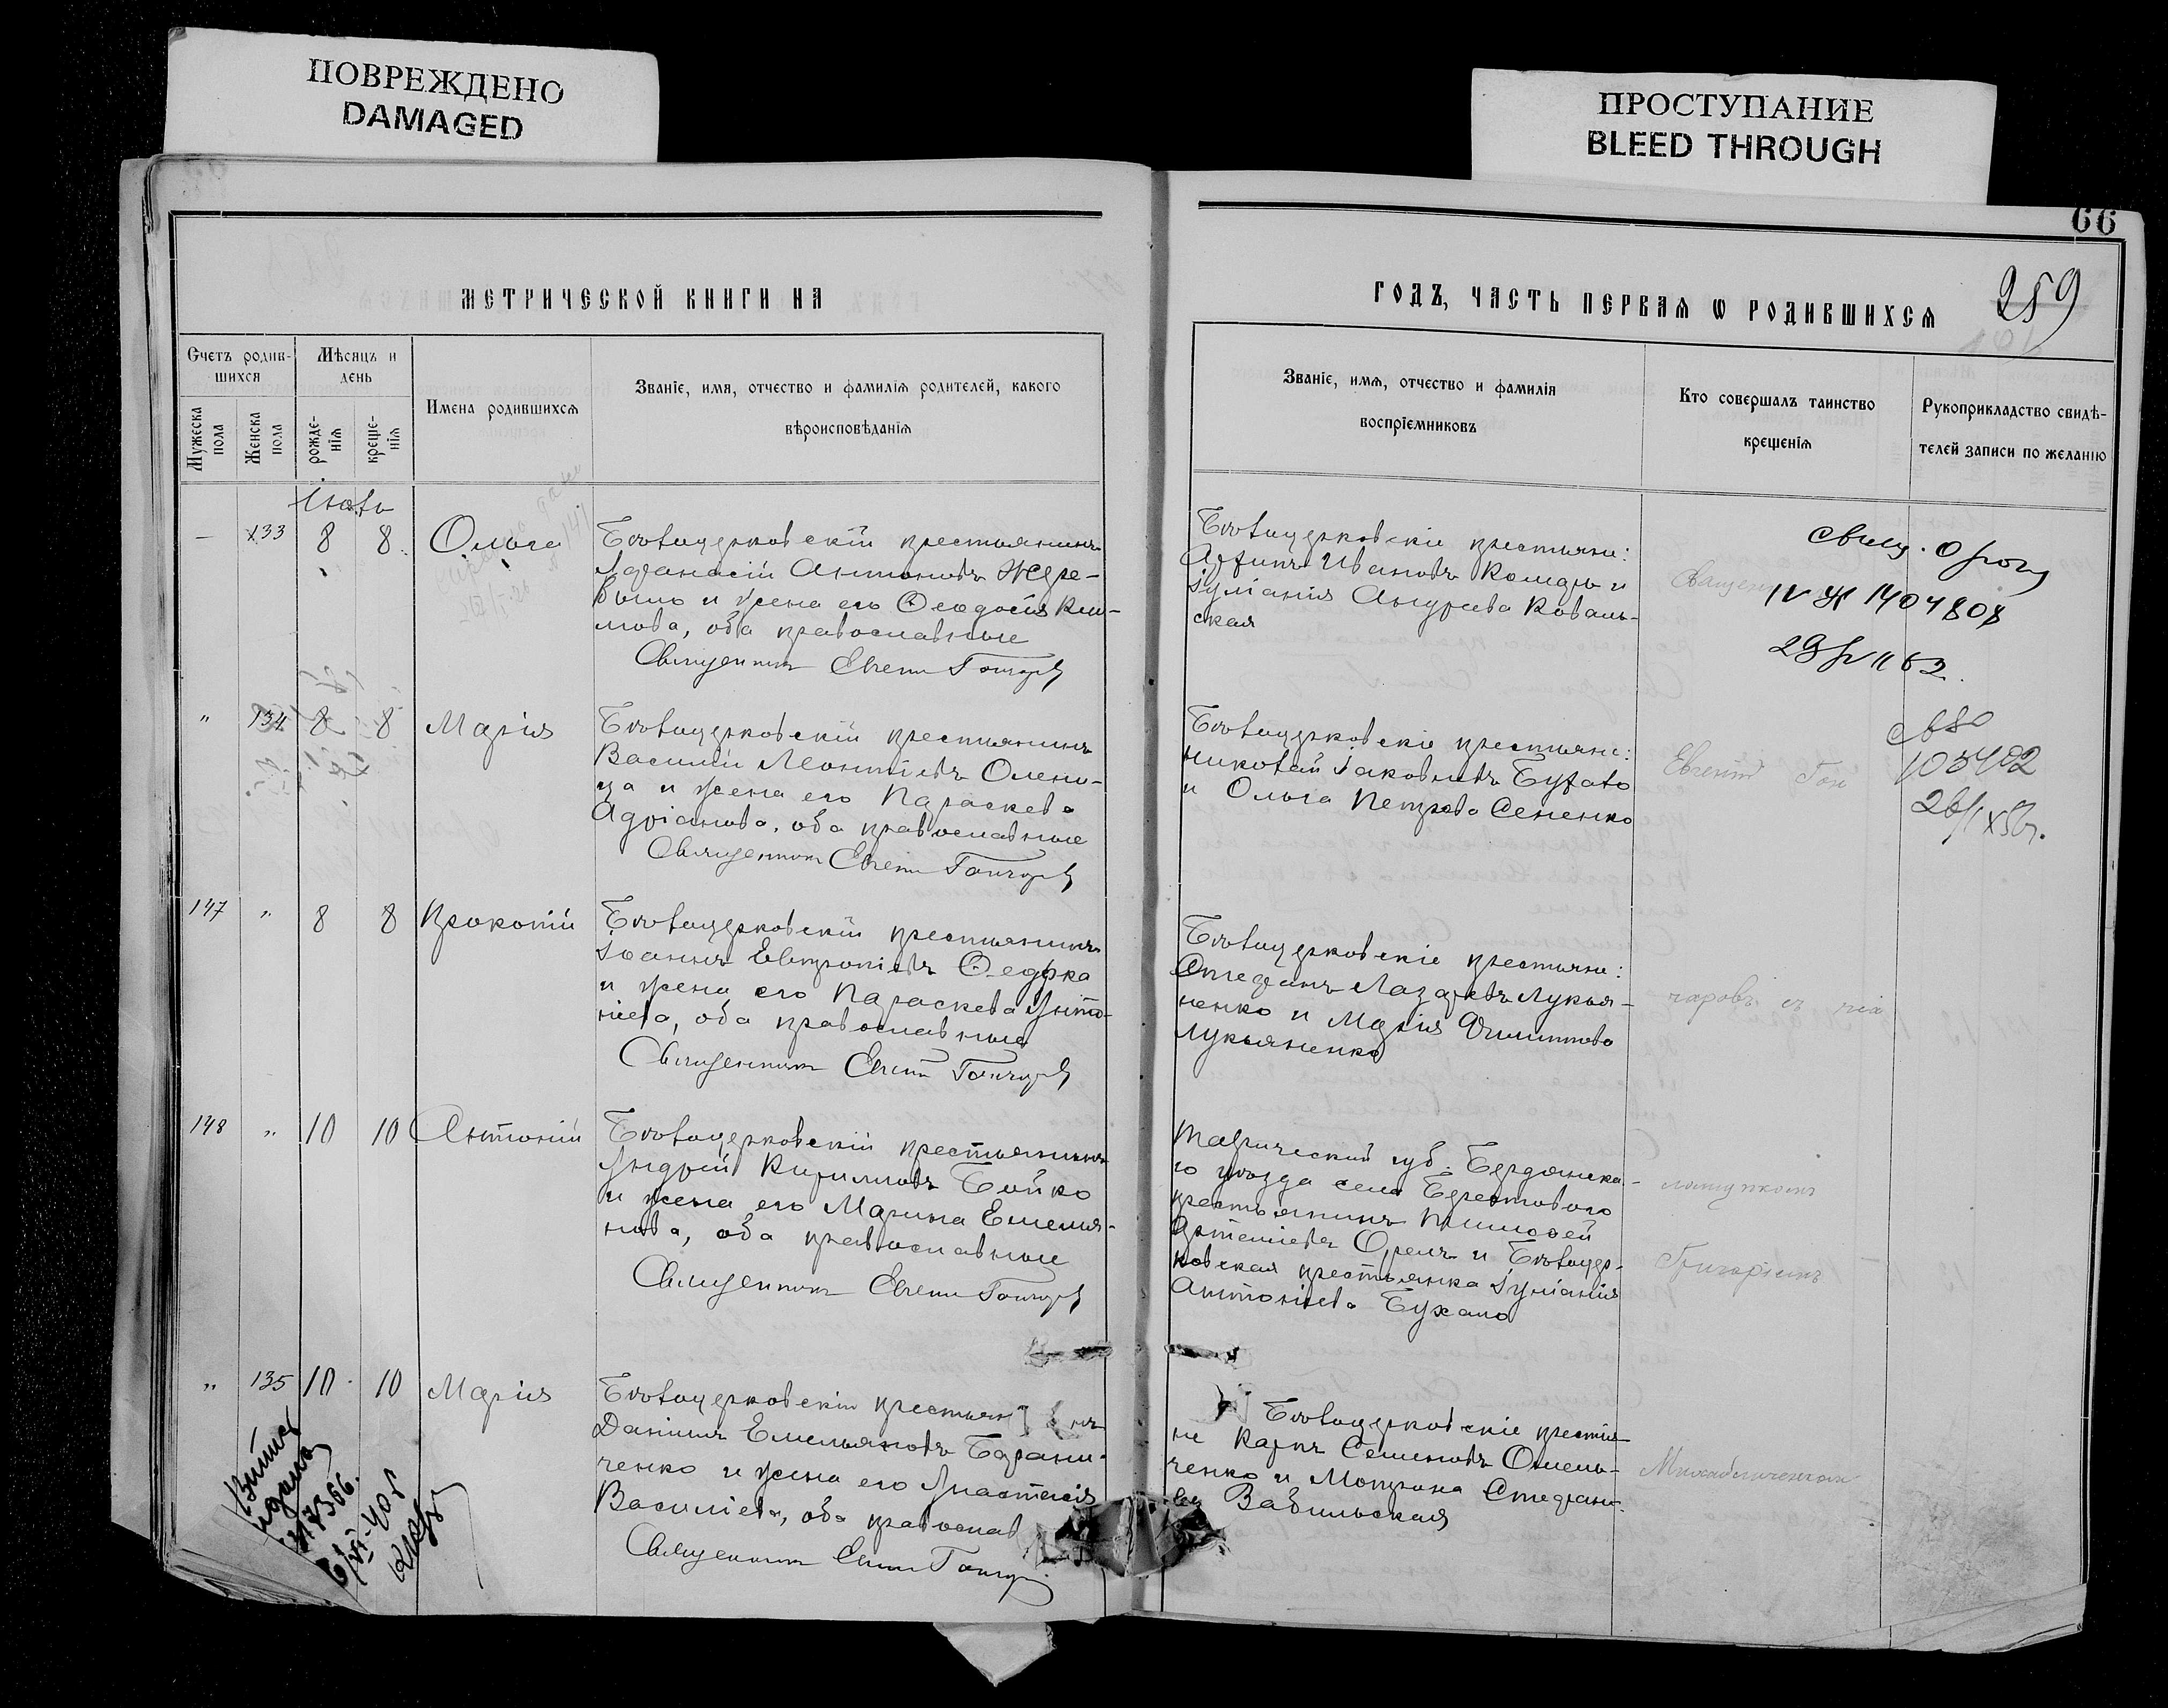 ПОВРЕЖДЕНО
DAMAGED
ПРОСТУПАНИЕ
BLEED THROUGH
66
259
МЕТРИЧЕСКОЙ КНИГИ НА
ГОДЪ, ЧАСТЬ ПЕРВАЯ Ѡ РОДИВШИХСЯ
Счетъ родив-
шихся
Мѣсяцъ и
день
Мужеска
пола
Женска
пола
рожде-
нія
креще-
нія
Имена родившихся
Званіе, имя, отчество и фамилія родителей, какого
вѣроисповѣданія
Званіе, имя, отчество и фамилія
воспріемниковъ
Кто совершалъ таинство
крещенія
Рукоприкладство свидѣ-
телей записи по желанію
— 133 8 8 Ольга
Бѣлоцерковскій крестьянинъ
Афанасій Антоновъ Жере-
было и жена его Ѳеодосія Кли-
мова, оба православные
Священникъ Евгеній Гончаровъ
Бѣлоцерковскіе крестьяне:
Ивановъ и
Іуліанія Андреева Коваль-
ская
Священ
IV 1404808
" 134 8 8 Марія
Бѣлоцерковскій крестьянинъ
Василій Леонтіевъ Олени-
ца и жена его Параскева
Адріанова, оба православные
Священникъ Евгеній Гончаровъ
Бѣлоцерковскіе крестьяне:
Николай Іаковлевъ Бухало
и Ольга Петрова Сененко
Евгеній Гон
147 " 8 8 Прокопій
Бѣлоцерковскій крестьянинъ
Іоаннъ Евтропіевъ Ѳедорка
и жена его Параскева Анто-
ніева, оба православные
Священникъ Евгеній Гончаровъ
Бѣлоцерковскіе крестьяне:
Стефанъ Лазаревъ Лукья-
ненко и Марія Филиппова
Лукьяненко
чаровъ съ пса
148 " 10 10 Антоній
Бѣлоцерковскій крестьянинъ
Андрей Кирилловъ Бойко
и жена его Марина Емелья-
нова, оба православные
Священникъ Евгеній Гончаровъ
Таврической губ. Бердянска-
го уѣзда села Берестового
крестьянинъ Тимоѳей
Артеміевъ Орелъ и Бѣлоцер-
ковская крестьянка Іуліанія
Антоніева Бухало
ломщикомъ
Григоріемъ
" 135 10 10 Марія
Бѣлоцерковскій крестьян нъ
Даніилъ Емельяновъ Барани-
ченко и жена его Анастасія
Василіева, оба православ
Священникъ Евгеній Гончаровъ
Бѣлоцерковскіе крестья-
не Карпъ Семеновъ Омель-
ченко и Мотрона Стефано-
ва Вабильская
Михайличенкомъ